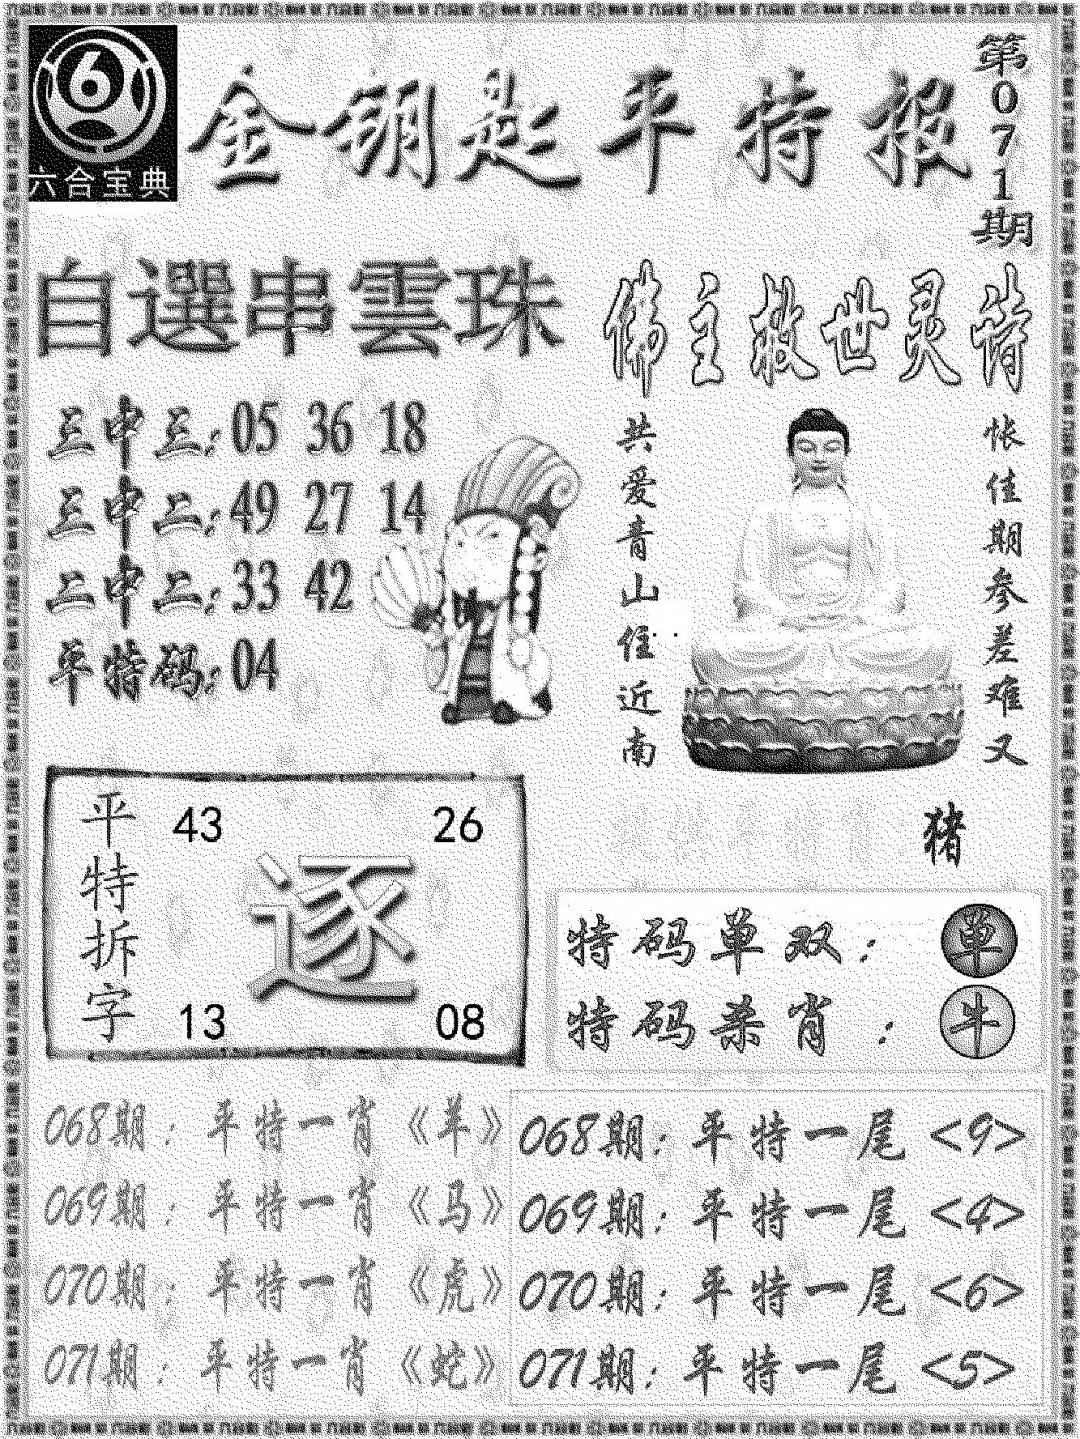 六合宝典
金钥匙平特报
第071期
自選串雲珠
三中三:05 36 18
三中二:49 27 14
二中二:33 42
平特码:04
佛主救世灵诗
怅佳期参差难又
共爱青山住近南
猪
平特拆字
43 26
逐
13 08
特码单双: 单
特码杀肖: 牛
068期:平特一肖《羊》
069期:平特一肖《马》
070期:平特一肖《虎》
071期:平特一肖《蛇》
068期:平特一尾<9>
069期:平特一尾<4>
070期:平特一尾<6>
071期:平特一尾<5>